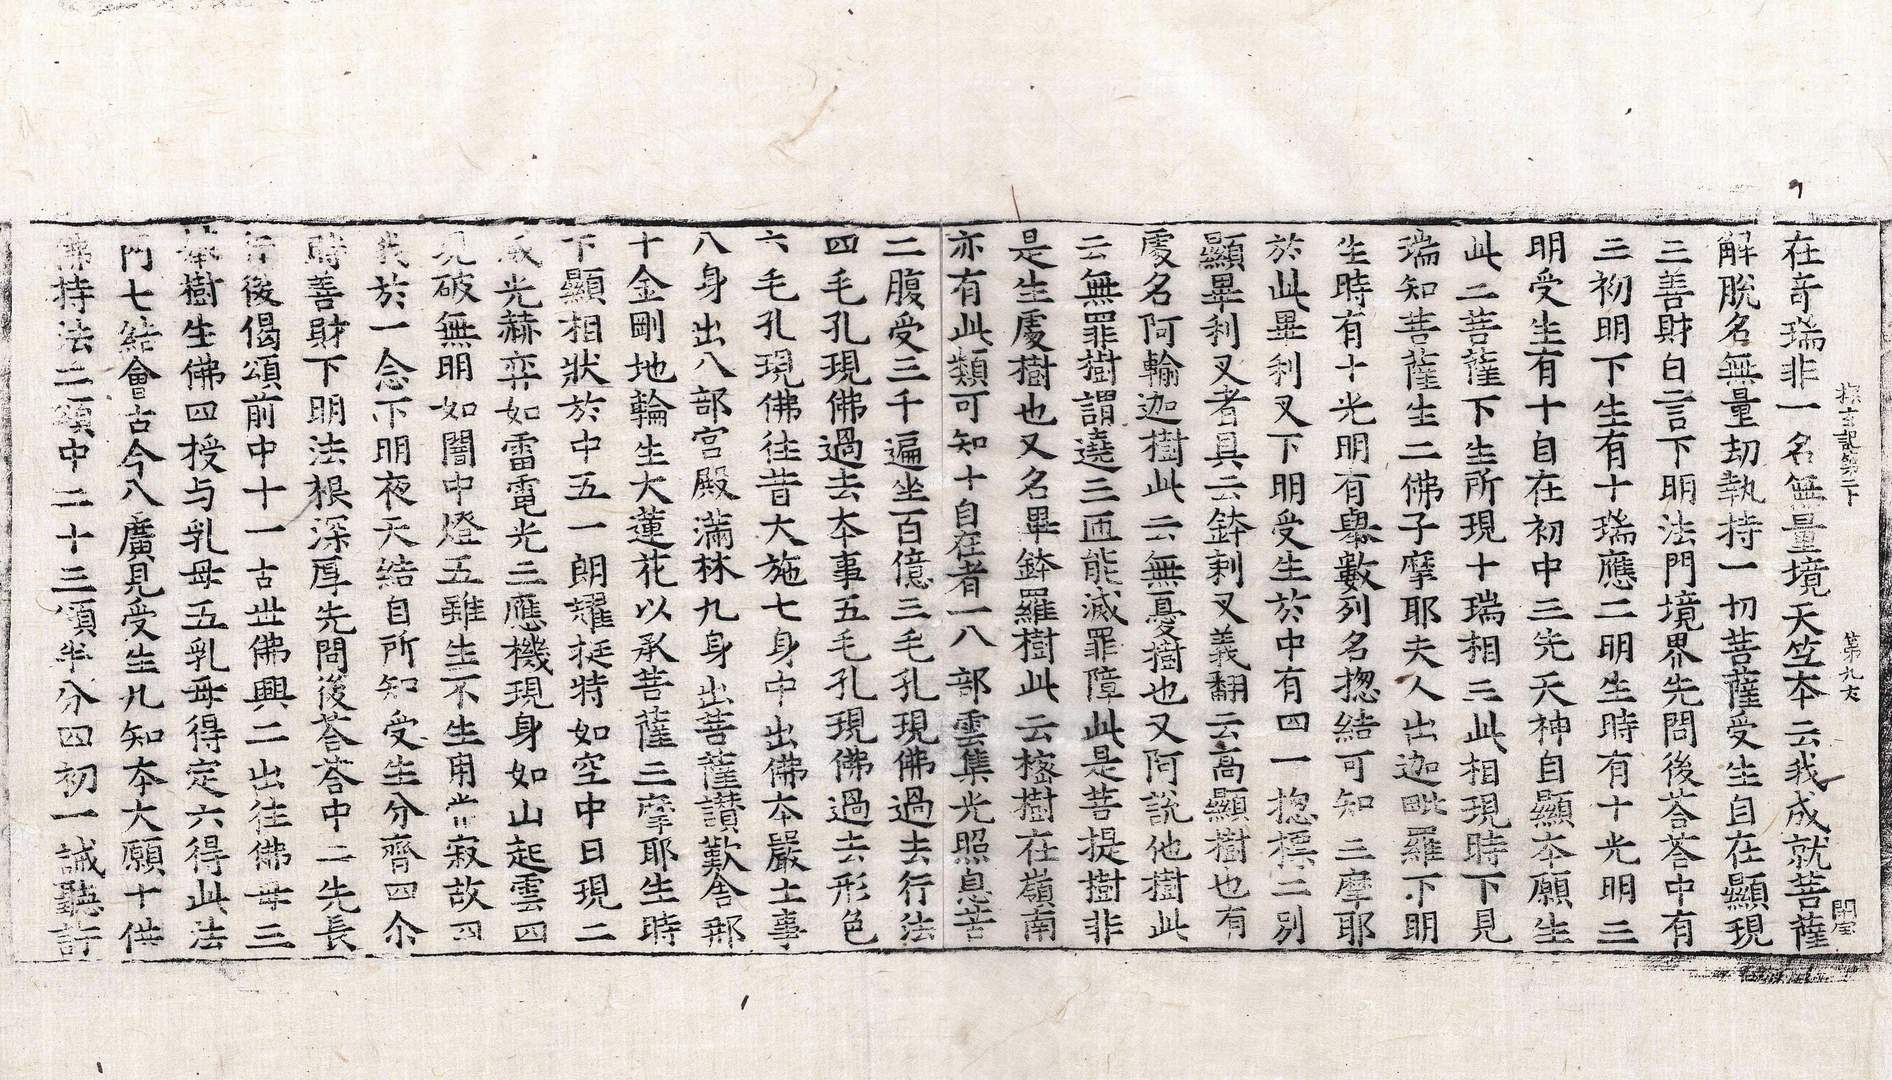 探玄記第二下 第九丈 開宝
在奇瑞非一名無量境天笁本云我成就菩薩
解脫名無量劫執持一切菩薩受生自在顯現
三善財白言下明法門境界先問後荅荅中有
三初明下生有十瑞應二明生時有十光明三
明受生有十自在初中三先天神自顯本願生
此二菩薩下生所現十瑞相三此相現時下見
瑞知菩薩生二佛子摩耶夫人出迦毗羅下明
生時有十光明有舉數列名揔結可知三摩耶
於此畢利叉下明受生於中有四一揔標二別
顯畢利叉者具云鉢剌叉義翻云高顯樹也有
處名阿輸迦樹此云無憂樹也又阿說他樹此
云無罪樹謂遶三匝能滅罪障此是菩提樹非
是生處樹也又名畢鉢羅樹此云榕樹在嶺南
亦有此類可知十自在者一八部雲集光照息苦
二腹受三千遍坐百億三毛孔現佛過去行法
四毛孔現佛過去本事五毛孔現佛過去形色
六毛孔現佛往昔大施七身中出佛本嚴土事
八身出八部宮殿滿林九身出菩薩讃歎舍那
十金剛地輪生大蓮花以承菩薩三摩耶生時
下顯相狀於中五一朗耀挺特如空中日現二
威光赫弈如雷電光三應機現身如山起雲四
現破無明如闇中燈五雖生不生用常寂故四
我於一念下明夜天結自所知受生分齊四尒
時善財下明法根深厚先問後荅荅中二先長
行後偈頌前中十一古世佛興二出往佛母三
攀樹生佛四授与乳母五乳母得定六得此法
門七結會古今八廣見受生九知本大願十供
佛持法二頌中二十三頌半分四初一誡聽許